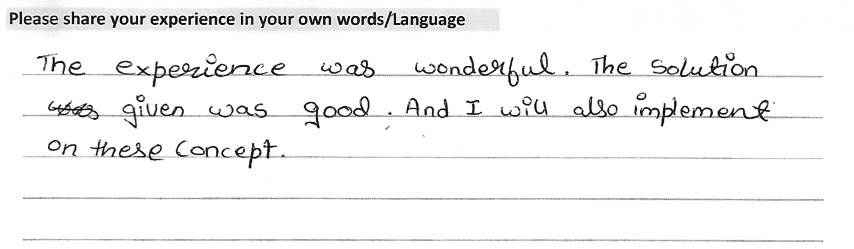 Please share your experience in your own words/Language
The experience was wonderful. The solution
given was good. And I will also implement
on these concept.